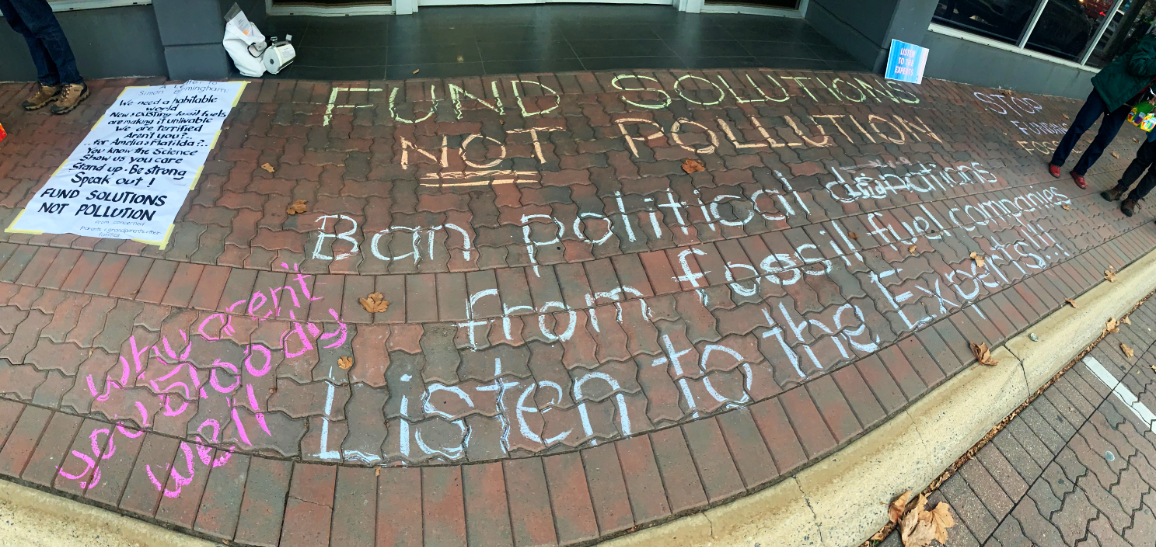 We need a habitable
world
New & existing fossil fuels
are making it unlivable
We are terrified
Aren't you?..
for Amelia & Matilda?..
You know the Science
Show us you care
Stand up. Be strong
Speak out!
FUND SOLUTIONS
NOT POLLUTION
FUND SOLUTIONS
NOT POLLUTION
Ban political donations
from fossil fuel companies
Listen to the Experts!!!
Why arent
you bloody
well
LISTEN
TO THE
EXPERTS
STOP